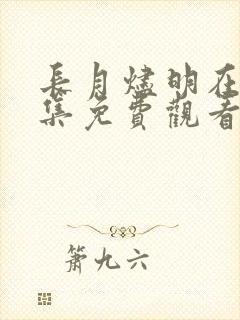 長月燼明在
集免費觀看
簫九六